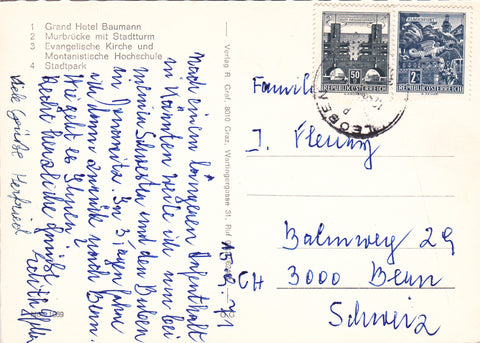 1 Grand Hotel Baumann
2 Murbrücke mit Stadtturm
3 Evangelische Kirche und
Montanistische Hochschule
4 Stadtpark
Nach einem längeren Aufenthalt
in Kärnten weile ich nun bei
meiner Schwester und den Buben
in Donawitz. In 3 Tagen fahre
ich dann zurück nach Bern.
Wie geht es Ihnen?
Recht herzliche Grüße
Edith
Viele Grüße Herfried
15. 9. 71
Verlag R. Graf, 8010 Graz, Wartingergasse 31, Ruf
50
REPUBLIK ÖSTERREICH
2
REPUBLIK ÖSTERREICH
LEOBEN
Familie
J. Fleury
Balmweg 29
CH 3000 Bern
Schweiz